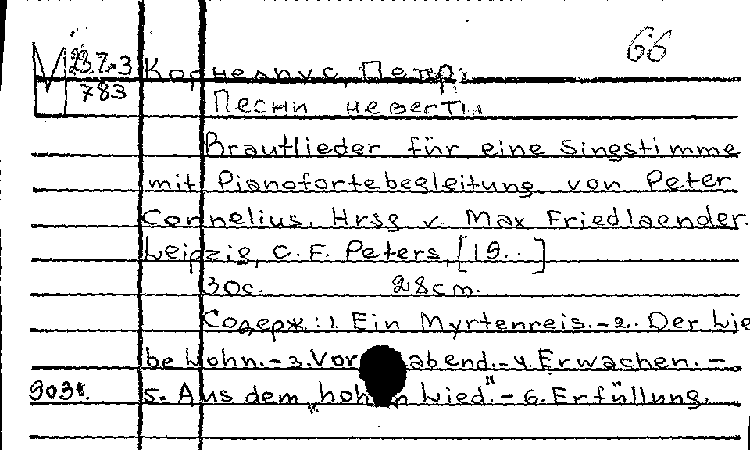 66
М 23.7.3 Корнелиус, Петр.
783 Песни невесты
Brautlieder für eine Singstimme
mit Pianofortebegleitung von Peter
Cornelius. Hrsg v. Max Friedlaender.
Leipzig, C. F. Peters, [19..]
30c. 28cm.
Содерж: 1. Ein Myrtenreis. - 2. Der Lie
be Lohn. - 3. Vorabend. - 4. Erwachen. -
5. Aus dem „hohen Lied". - 6. Erfüllung.